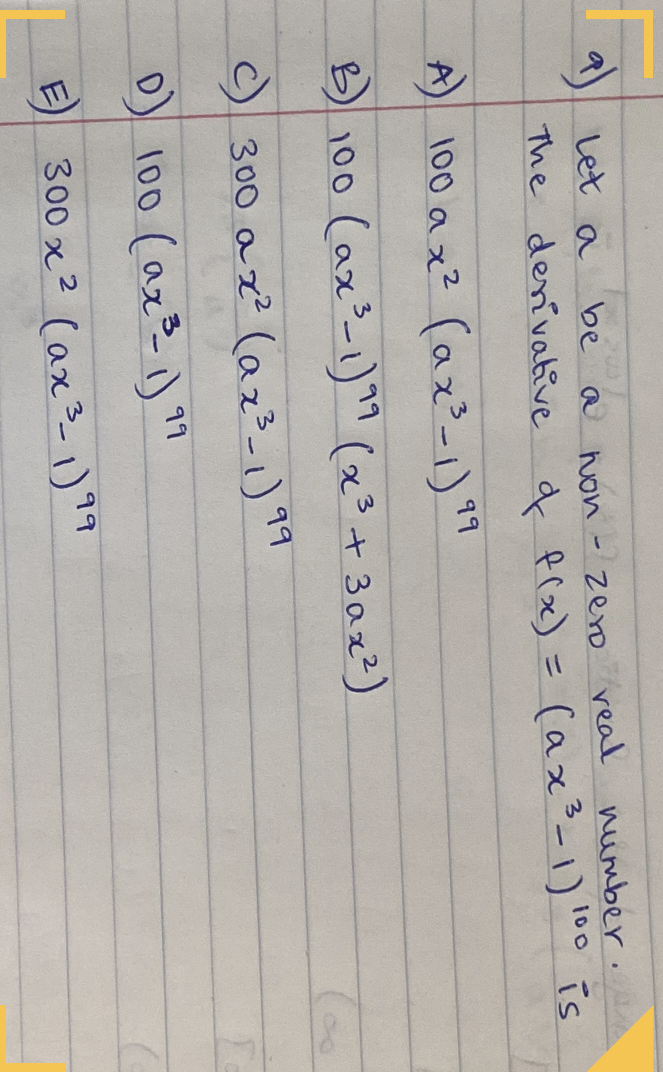 9) Let a be a non-zero real number.
The derivative of f(x) = (ax³-1)¹⁰⁰ is
A) 100 ax² (ax³-1)⁹⁹
B) 100 (ax³-1)⁹⁹ (x³ + 3ax²)
C) 300 ax² (ax³-1)⁹⁹
D) 100 (ax³-1)⁹⁹
E) 300 x² (ax³-1)⁹⁹